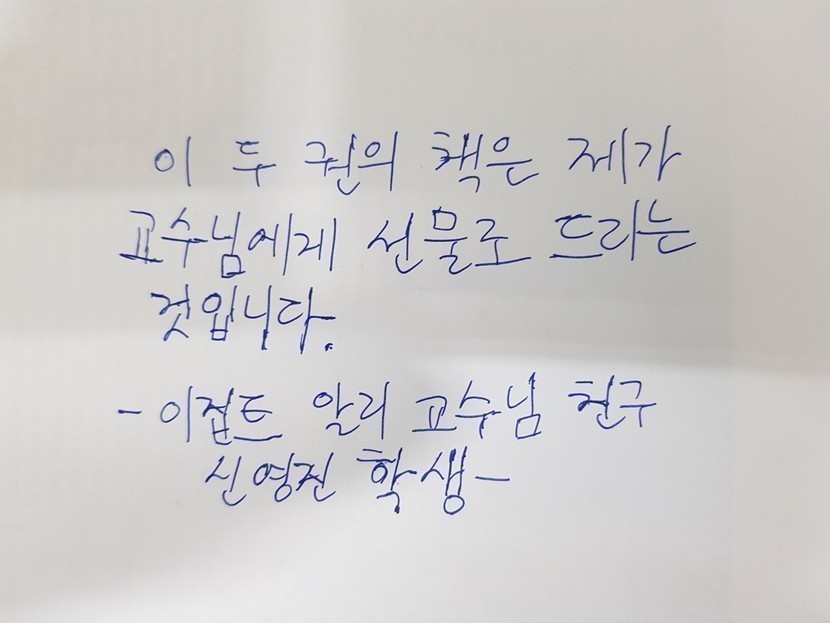 이 두 권의 책은 제가
교수님에게 선물로 드리는
것입니다.
- 이집트 알리 교수님 친구
신영진 학생 -